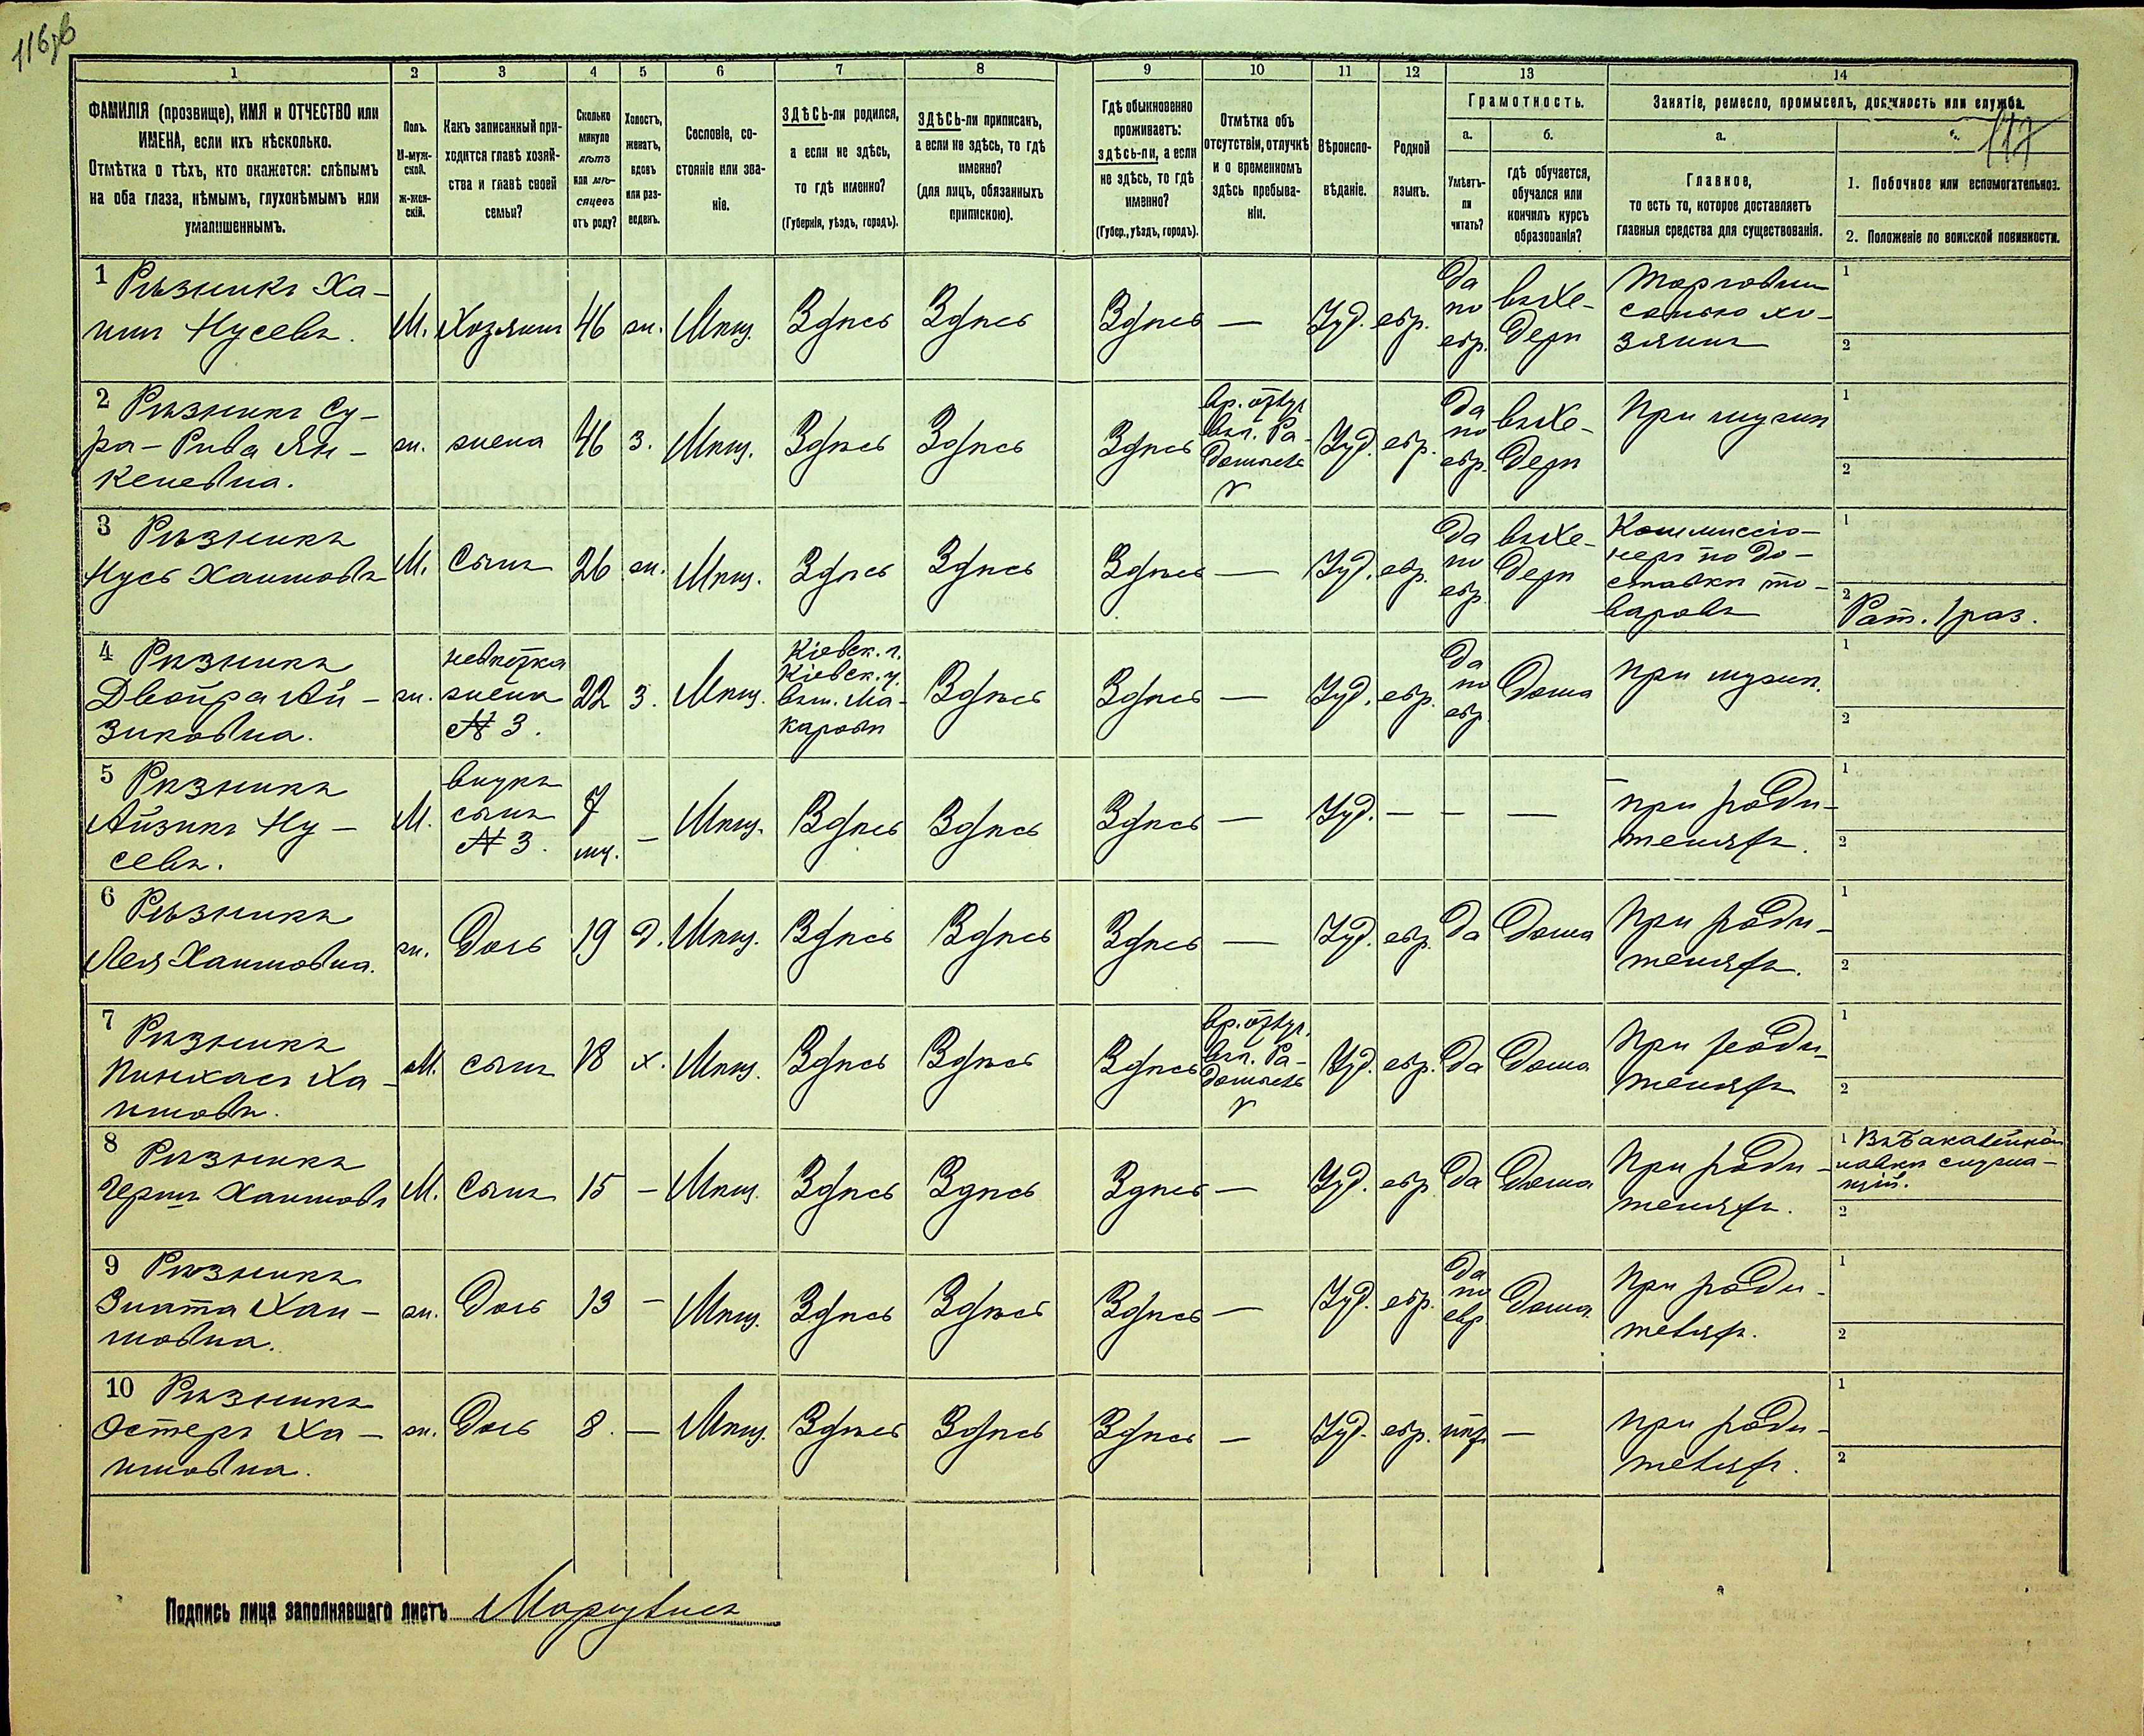 116об
117
1 2 3 4 5 6 7 8 9 10 11 12 13 14
ФАМИЛІЯ (прозвище), ИМЯ и ОТЧЕСТВО или
ИМЕНА, если ихъ нѣсколько.
Отмѣтка о тѣхъ, кто окажется: слѣпымъ
на оба глаза, нѣмымъ, глухонѣмымъ или
умалишеннымъ.
Полъ.
М-муж-
ской.
ж-жен-
скій.
Какъ записанный при-
ходится главѣ хозяй-
ства и главѣ своей
семьи?
Сколько
минуло
лѣтъ
или мѣ-
сяцевъ
отъ роду?
Холостъ,
женатъ,
вдовъ
или раз-
веденъ.
Сословіе, со-
стояніе или зва-
ніе.
ЗДѢСЬ-ли родился,
а если не здѣсь,
то гдѣ именно?
(Губернія, уѣздъ, городъ).
ЗДѢСЬ-ли приписанъ,
а если не здѣсь, то гдѣ
именно?
(для лицъ, обязанныхъ
припискою).
Гдѣ обыкновенно
проживаетъ:
здѣсь-ли, а если
не здѣсь, то гдѣ
именно?
(Губер., уѣздъ, городъ).
Отмѣтка объ
отсутствіи, отлучкѣ
и о временномъ
здѣсь пребыва-
ніи.
Вѣроиспо-
вѣданіе.
Родной
языкъ.
Грамотность.
а.
Умѣетъ-
ли
читать?
б.
гдѣ обучается,
обучался или
кончилъ курсъ
образованія?
Занятіе, ремесло, промыселъ, должность или служба.
а.
Главное,
то есть то, которое доставляетъ
главныя средства для существованія.
1. Побочное или вспомогательное.
2. Положеніе по воинской повинности.
1 Рѣзникъ Ха-
имъ Нусевъ.
М. Хозяинъ 46 ж. Мѣщ. Здѣсь Здѣсь Здѣсь — Іуд. евр.
да
по
евр.
въ хе-
дерѣ
Торговли
солью хо-
зяинъ
1
2
2 Рѣзникъ Су-
ра-Рива Ян-
келевна.
ж. жена 46 з. Мѣщ. Здѣсь Здѣсь Здѣсь
вр. отлуч.
въ г. Ра-
домыслѣ
Іуд. евр.
да
по
евр.
въ хе-
дерѣ
При мужѣ
1
2
3 Рѣзникъ
Нусь Хаимовъ
М. Сынъ 26 ж. Мѣщ. Здѣсь Здѣсь Здѣсь — Іуд. евр.
да
по
евр.
въ хе-
дерѣ
Коммиссіо-
неръ по до-
ставкѣ то-
варовъ
1
2
Рат. 1 раз.
4 Рѣзникъ
Двойра Ай-
зиковна.
ж.
невѣстка
жена
№ 3.
22 з. Мѣщ.
Кіевск. г.
Кіевск. у.
въ м. Ма-
каровѣ
Здѣсь Здѣсь — Іуд. евр.
да
по
евр.
Дома
При мужѣ.
1
2
5 Рѣзникъ
Айзикъ Ну-
севъ.
М.
внукъ
сынъ
№ 3.
7
мѣ.
— Мѣщ. Здѣсь Здѣсь Здѣсь — Іуд. — — —
при роди-
теляхъ.
1
2
6 Рѣзникъ
Лея Хаимовна.
ж. Дочь 19 д. Мѣщ. Здѣсь Здѣсь Здѣсь — Іуд. евр. да Дома
При роди-
теляхъ.
1
2
7 Рѣзникъ
Пинхасъ Ха-
имовъ.
М. сынъ 18 х. Мѣщ. Здѣсь Здѣсь Здѣсь
вр. отлуч.
въ г. Ра-
домыслѣ
Іуд. евр. да Дома
При роди-
теляхъ
1
2
8 Рѣзникъ
Гершъ Хаимовъ
М. Сынъ 15 — Мѣщ. Здѣсь Здѣсь Здѣсь — Іуд. евр. да Дома
При роди-
теляхъ.
1 Въ бакалейной
лавкѣ служа-
щій.
2
9 Рѣзникъ
Злата Хаи-
мовна.
ж. Дочь 13 — Мѣщ. Здѣсь Здѣсь Здѣсь — Іуд. евр.
да
по
евр.
Дома
При роди-
теляхъ.
1
2
10 Рѣзникъ
Эстеръ Ха-
имовна.
ж. Дочь 8. — Мѣщ. Здѣсь Здѣсь Здѣсь — Іуд. евр. нѣтъ —
при роди-
теляхъ.
1
2
Подпись лица заполнявшаго листъ